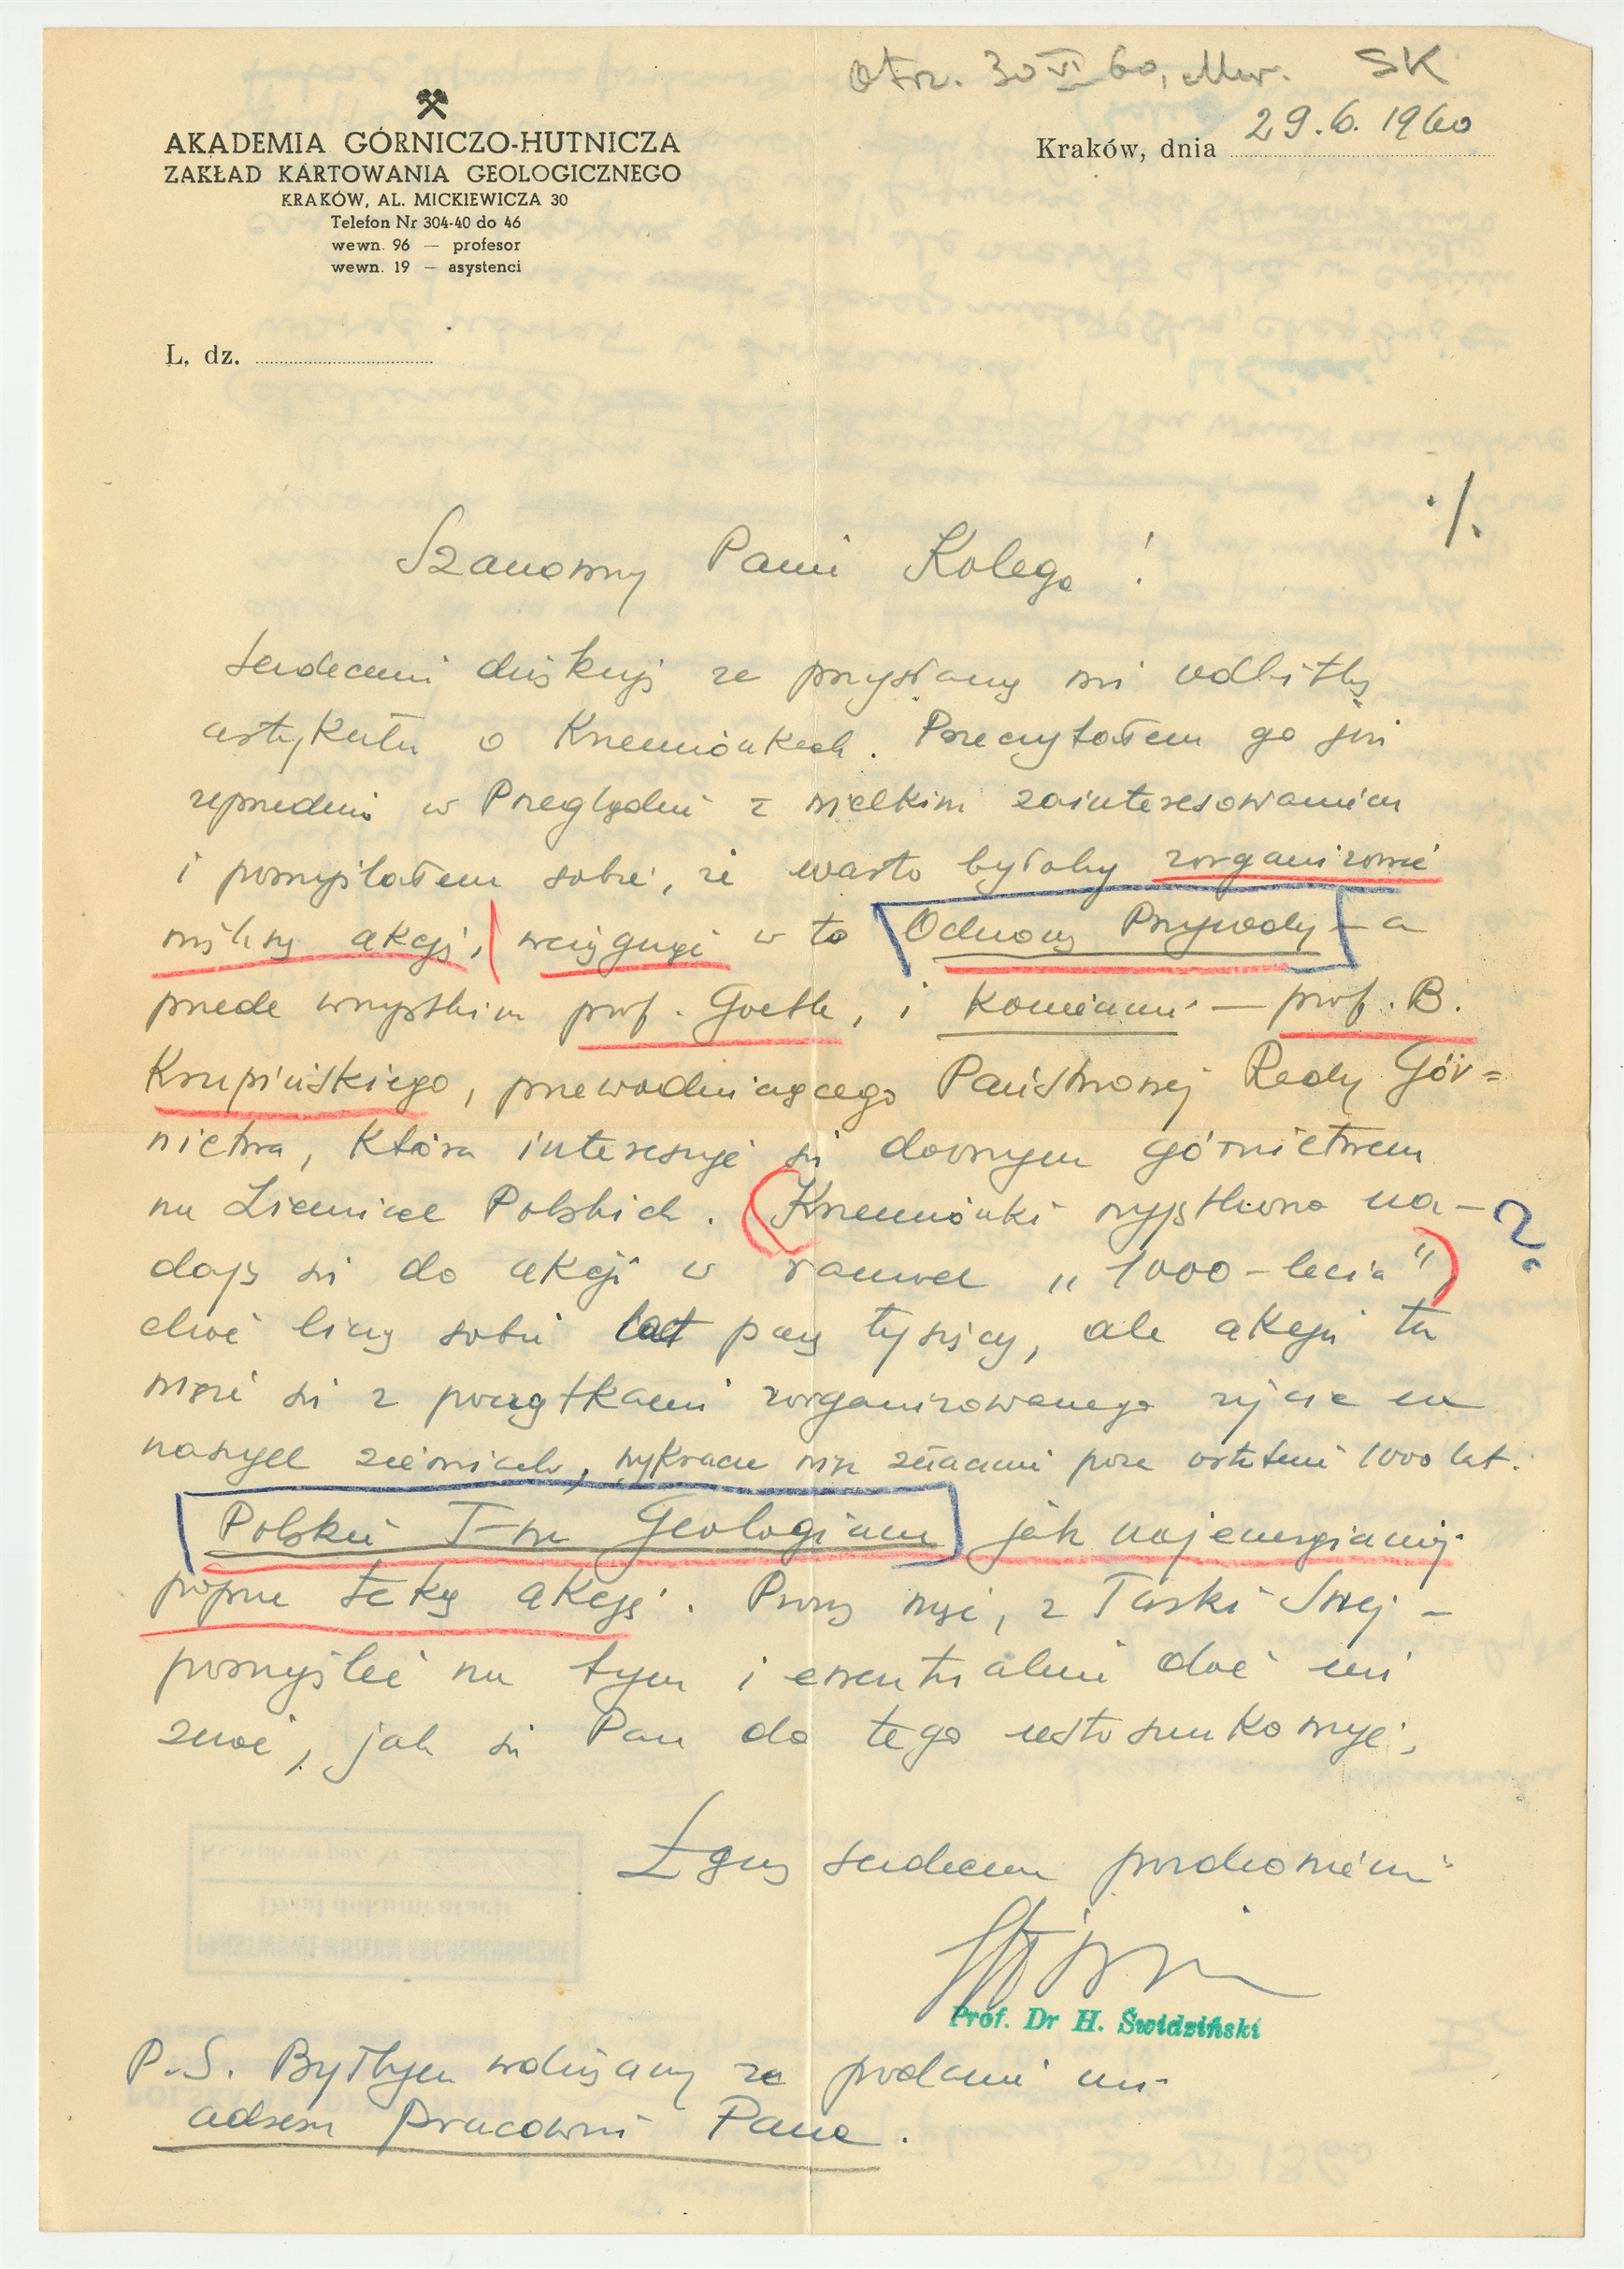 Otrz. 30 VI 60, SK
AKADEMIA GÓRNICZO-HUTNICZA
ZAKŁAD KARTOWANIA GEOLOGICZNEGO
KRAKÓW, AL. MICKIEWICZA 30
Telefon Nr 304-40 do 46
wewn. 96 — profesor
wewn. 19 — asystenci
Kraków, dnia 29.6.1960
L. dz.
./.
Szanowny Panie Kolego!
Serdecznie dziękuję za przysłaną mi odbitkę
artykułu o Krzemionkach. Przeczytałem go już
uprzednio w Przeglądzie z wielkim zainteresowaniem
i pomyślałem sobie, że warto byłoby zorganizować
większą akcję, wciągnąć w to Ochronę Przyrody – a
przede wszystkim prof. Goetla, i koniecznie — prof. B.
Krupińskiego, przewodniczącego Państwowej Rady Gór=
nictwa, która interesuje się dawnym górnictwem
na Ziemiach Polskich. (Krzemionki wyjątkowo na–
dają się do akcji w ramach „1000–lecia") ?
choć liczą sobie lat parę tysięcy, ale akcja ta
wiąże się z początkami zorganizowanego życia na
naszych ziemiach, wykracza więc znacznie poza ostatnie 1000 lat.
Polskie T-wo Geologiczne jak najenergiczniej
poprze taką akcję. Proszę więc, z Łaski Swej –
pomyśleć nad tym i ewentualnie dać mi
znać, jak się Pan do tego ustosunkowuje.
Łączę serdeczne pozdrowienia
Prof. Dr H. Świdziński
P.S. Byłbym wdzięczny za podanie mi
adresu pracowni Pana.